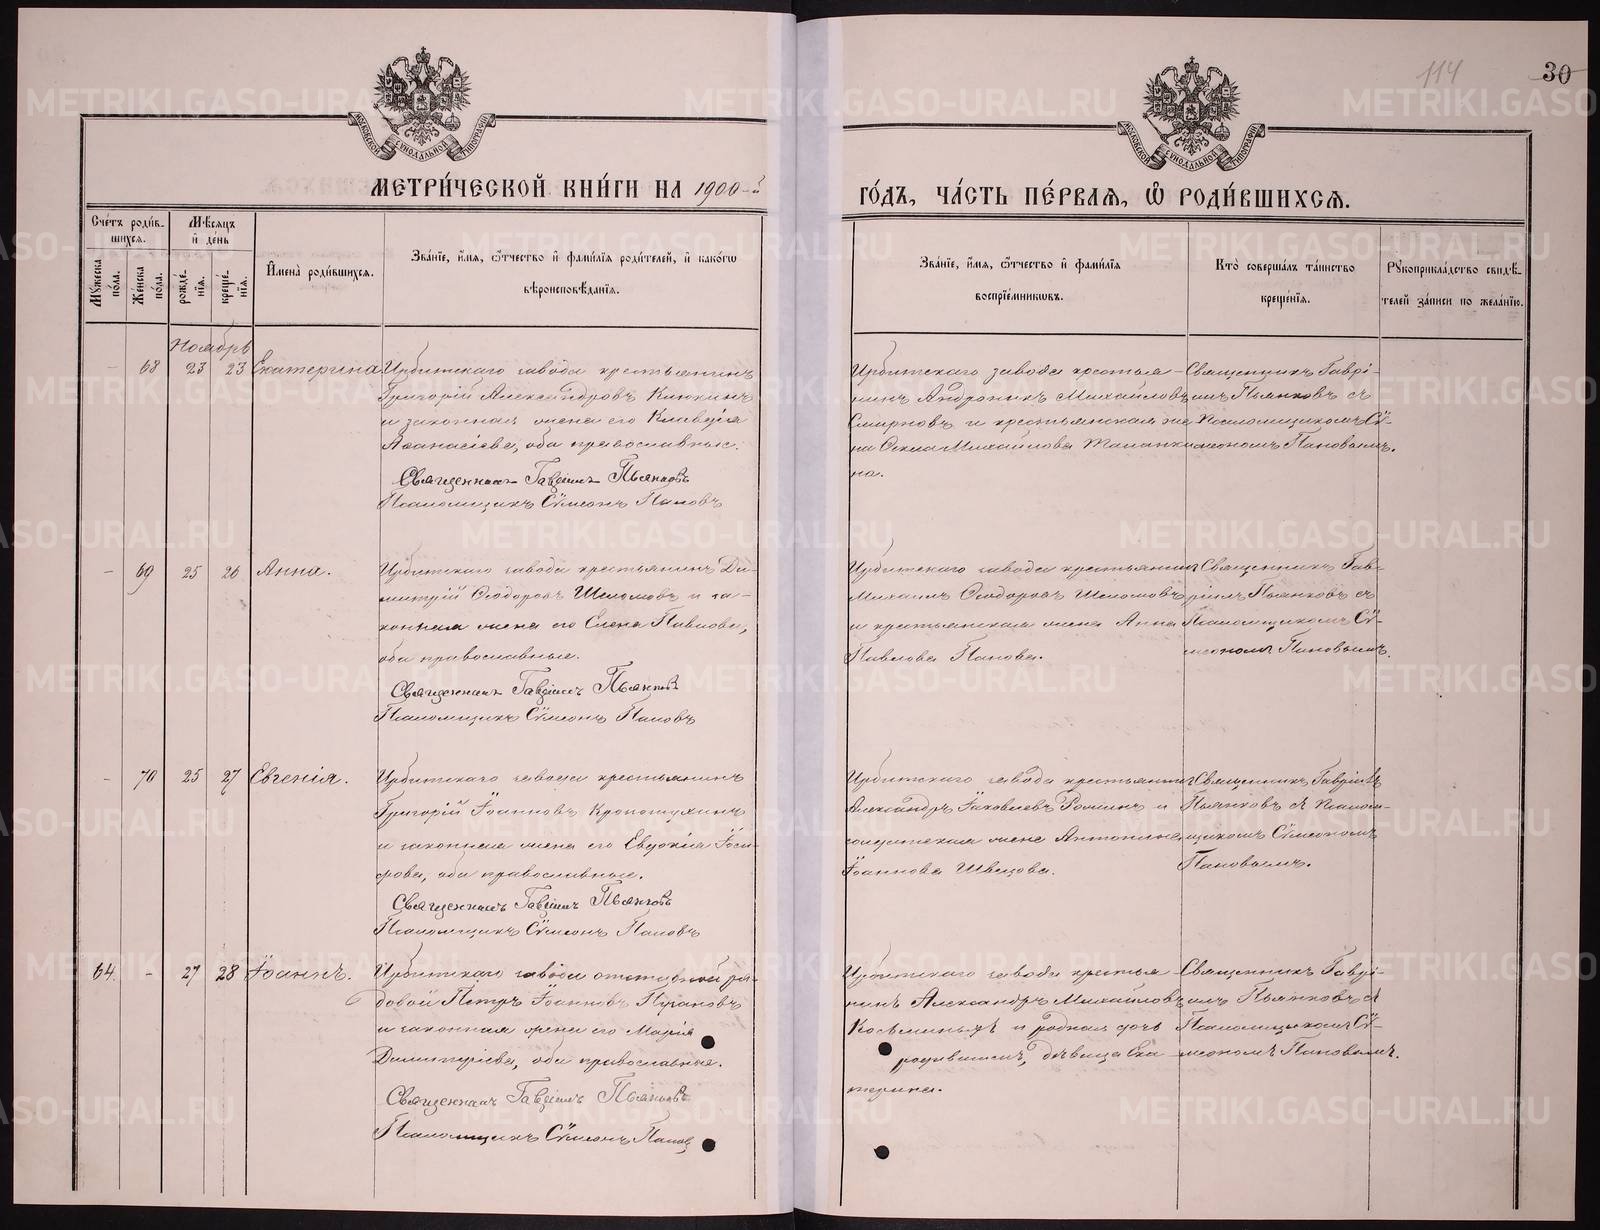 114
30
МОСКОВСКОЙ СѴНОДАЛЬНОЙ ТИПОГРАФІИ
МОСКОВСКОЙ СѴНОДАЛЬНОЙ ТИПОГРАФІИ
МЕТРИ́ЧЕСКОЙ КНИ́ГИ НА 1900-й
ГО́ДЪ, ЧА́СТЬ ПЕ́РВАѦ, Ѽ РОДИ́ВШИХСѦ.
Сче́тъ роди́в-
шихсѧ.
Мѣ́сѧцъ
и҆ де́нь
Мꙋ́жеска по́ла.
Же́нска по́ла.
рожде́нїѧ.
креще́нїѧ.
И҆мена̀ роди́вшихсѧ.
Зва́нїе, и҆́мѧ, ѻ҆́тчество и҆ фамі́лїѧ роди́телей, и҆ како́гѡ
вѣроисповѣ́данїѧ.
Зва́нїе, и҆́мѧ, ѻ҆́тчество и҆ фамі́лїѧ
воспрїе́мникѡвъ.
Кто̀ соверша́лъ та́инство
креще́нїѧ.
Рꙋкоприкла́дство свидѣ́-
телей за́писи по жела́нїю.
Ноябрь
- 68 23 23 Екатерина
Ирбитскаго завода крестьянинъ
Григорій Александровъ Клюкинъ
и законная жена его Клавдія
Аѳанасіева, оба православные.
Священникъ Гавріилъ Пьянковъ
Псаломщикъ Сѵмеонъ Пановъ
Ирбитскаго завода крестья-
нинъ Андроникъ Михайловъ
Смирновъ и крестьянская же-
на Ѳекла Михайлова Талан
на.
Священникъ Гаврі-
илъ Пьянковъ съ
Псаломщикомъ Сѵ-
меономъ Пановымъ.
- 69 25 26 Анна.
Ирбитскаго завода крестьянинъ Ди-
митрій Ѳеодоровъ Шеломовъ и за-
конная жена его Елена Павлова,
оба православные.
Священникъ Гавріилъ Пьянковъ
Псаломщикъ Сѵмеонъ Пановъ
Ирбитскаго завода крестьянинъ
Михаилъ Ѳеодоровъ Шеломовъ
и крестьянская жена Анна
Павлова Панова.
Священникъ Гав-
ріилъ Пьянковъ съ
Псаломщикомъ Сѵ-
меономъ Пановымъ.
- 70 25 27 Евгенія.
Ирбитскаго завода крестьянинъ
Григорій Іоанновъ Кропотухинъ
и законная жена его Евдокія
оба православные.
Священникъ Гавріилъ Пьянковъ
Псаломщикъ Сѵмеонъ Пановъ
Ирбитскаго завода крестьянинъ
Александръ Іаковлевъ Рожинъ и
солдатская жена Антонина
Іоаннова Швецова.
Священникъ Гавріилъ
Пьянковъ съ Псалом-
щикомъ Сѵмеономъ
Пановымъ.
64 - 27 28 Іоаннъ.
Ирбитскаго завода отставной ря-
довой Петръ Іоанновъ
и законная жена его Марія
Димитріева, оба православные.
Священникъ Гавріилъ Пьянковъ
Псаломщикъ Сѵмеонъ Пановъ
Ирбитскаго завода крестья-
нинъ Александръ Михайловъ
Косьминыхъ и родная дочь
родившагося, дѣвица Ека-
терина.
Священникъ Гаврі-
илъ Пьянковъ съ
Псаломщикомъ Сѵ-
меономъ Пановымъ.
METRIKI.GASO-URAL.RU